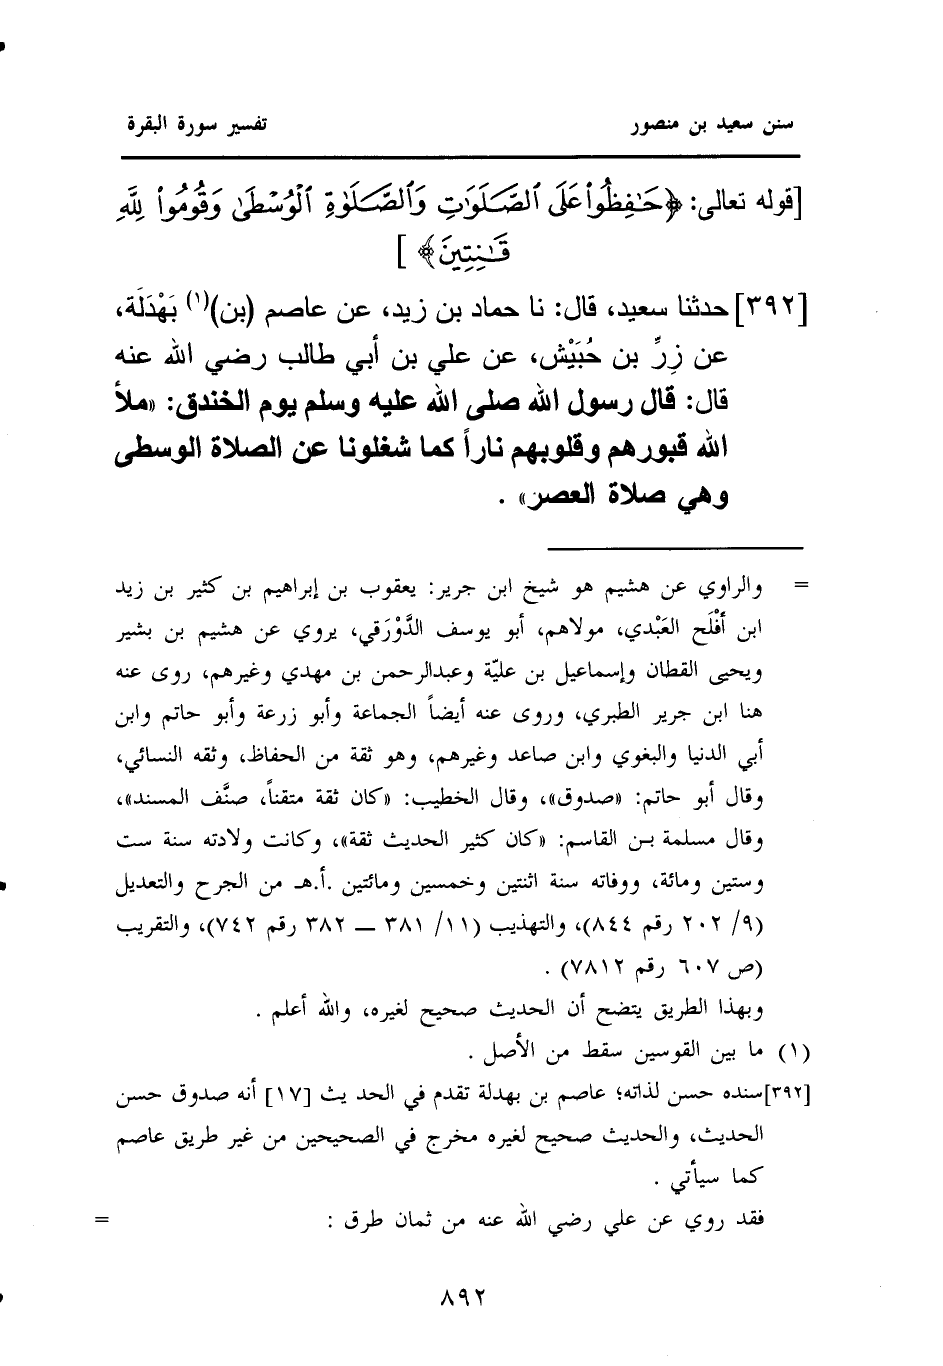 سنن سعيد بن منصور
تفسير سورة البقرة
[قوله تعالى: ﴿حَـٰفِظُوا۟ عَلَى ٱلصَّلَوَٰتِ وَٱلصَّلَوٰةِ ٱلْوُسْطَىٰ وَقُومُوا۟ لِلَّهِ
قَـٰنِتِينَ﴾ ]
[٣٩٢] حدثنا سعيد، قال: نا حماد بن زيد، عن عاصم (بن)(١) بَهْدَلَة،
عن زِرِّ بن حُبَيْش، عن علي بن أبي طالب رضي الله عنه
قال: قال رسول الله صلى الله عليه وسلم يوم الخندق: «ملأ
الله قبورهم وقلوبهم ناراً كما شغلونا عن الصلاة الوسطى
وهي صلاة العصر» .
= والراوي عن هشيم هو شيخ ابن جرير: يعقوب بن إبراهيم بن كثير بن زيد
ابن أَفْلَح العَبْدي، مولاهم، أبو يوسف الدَّوْرَقي، يروي عن هشيم بن بشير
ويحيى القطان وإسماعيل بن عليّة وعبدالرحمن بن مهدي وغيرهم، روى عنه
هنا ابن جرير الطبري، وروى عنه أيضاً الجماعة وأبو زرعة وأبو حاتم وابن
أبي الدنيا والبغوي وابن صاعد وغيرهم، وهو ثقة من الحفاظ، وثقه النسائي،
وقال أبو حاتم: «صدوق»، وقال الخطيب: «كان ثقة متقناً، صنَّف المسند»،
وقال مسلمة بن القاسم: «كان كثير الحديث ثقة»، وكانت ولادته سنة ست
وستين ومائة، ووفاته سنة اثنتين وخمسين ومائتين .أ.هـ من الجرح والتعديل
(٩/ ٢٠٢ رقم ٨٤٤)، والتهذيب (١١/ ٣٨١ – ٣٨٢ رقم ٧٤٢)، والتقريب
(ص ٦٠٧ رقم ٧٨١٢) .
وبهذا الطريق يتضح أن الحديث صحيح لغيره، والله أعلم .
(١) ما بين القوسين سقط من الأصل .
[٣٩٢] سنده حسن لذاته؛ عاصم بن بهدلة تقدم في الحد يث [١٧] أنه صدوق حسن
الحديث، والحديث صحيح لغيره مخرج في الصحيحين من غير طريق عاصم
كما سيأتي .
فقد روي عن علي رضي الله عنه من ثمان طرق : =
٨٩٢